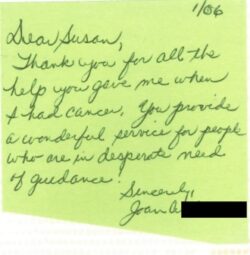 1/06
Dear Susan,
Thank you for all the
help you gave me when
I had cancer. You provide
a wonderful service for people
who are in desperate need
of guidance!
Sincerely,
Joan